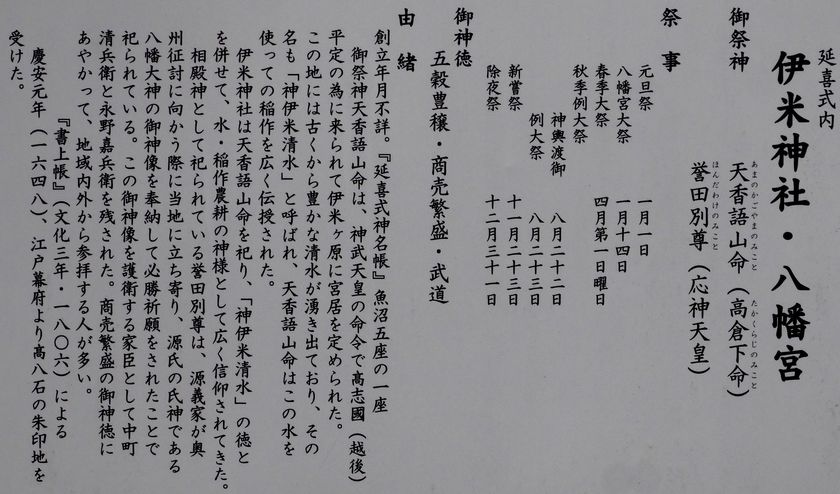 延喜式内
伊米神社・八幡宮
御祭神
天香語山命（高倉下命）
あまのかごやまのみこと
たかくらじのみこと
誉田別尊（応神天皇）
ほんだわけのみこと
祭事
元旦祭 一月一日
八幡宮大祭 一月十四日
春季大祭 四月第一日曜日
秋季例大祭
神輿渡御 八月二十二日
例大祭 八月二十三日
新嘗祭 十一月二十三日
除夜祭 十二月三十一日
御神徳
五穀豊穣・商売繁盛・武道
由緒
創立年月不詳。『延喜式神名帳』魚沼五座の一座
御祭神天香語山命は、神武天皇の命令で高志國（越後）
平定の為に来られて伊米ヶ原に宮居を定められた。
この地には古くから豊かな清水が湧き出ており、その
名も「神伊米清水」と呼ばれ、天香語山命はこの水を
使っての稲作を広く伝授された。
伊米神社は天香語山命を祀り、「神伊米清水」の徳と
を併せて、水・稲作農耕の神様として広く信仰されてきた。
相殿神として祀られている誉田別尊は、源義家が奥
州征討に向かう際に当地に立ち寄り、源氏の氏神である
八幡大神の御神像を奉納して必勝祈願をされたことで
祀られている。この御神像を護衛する家臣として中町
清兵衛と永野嘉兵衛を残された。商売繁盛の御神徳に
あやかって、地域内外から参拝する人が多い。
『書上帳』（文化三年・一八〇六）による
慶安元年（一六四八）、江戸幕府より高八石の朱印地を
受けた。